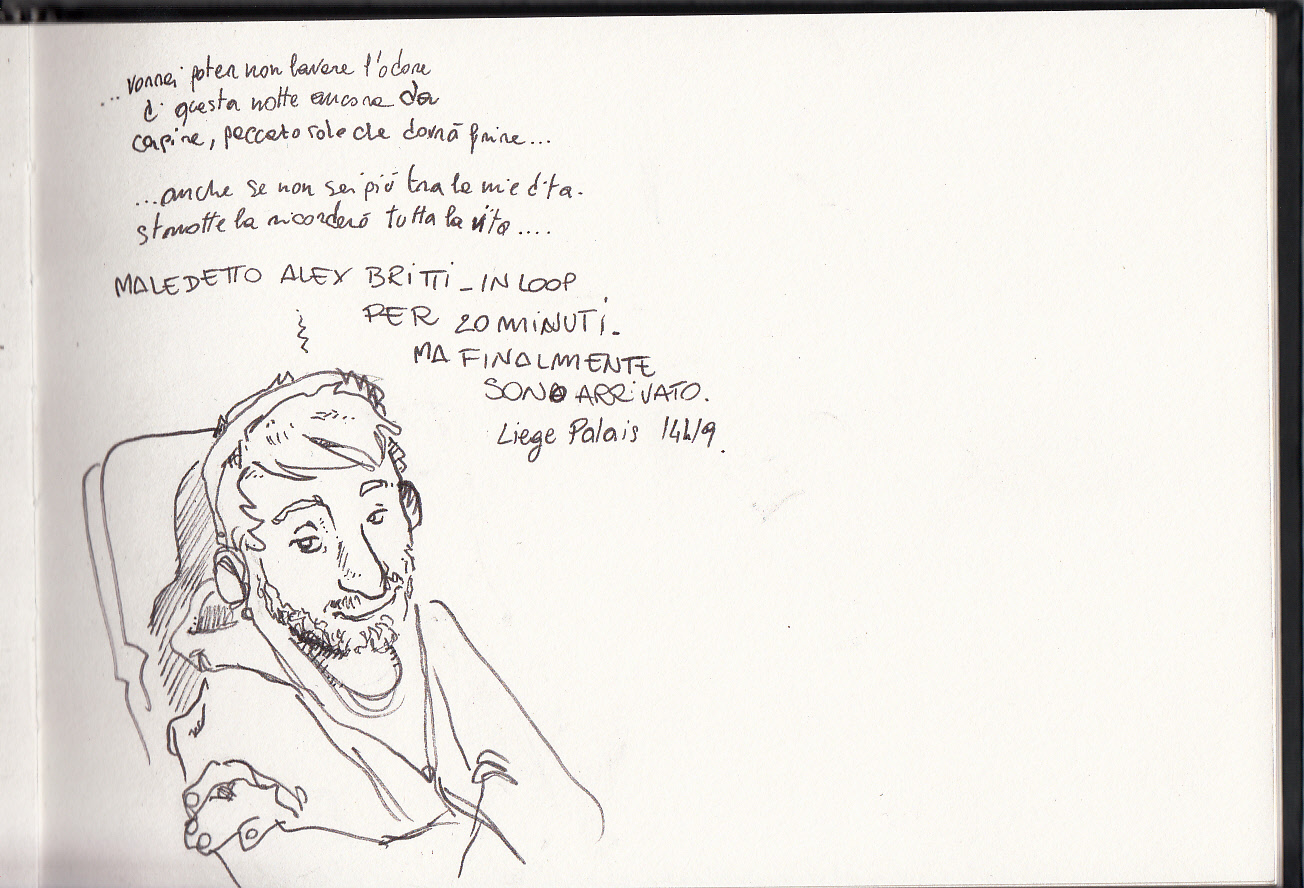 ...vorrei poter non lavare l'odore
di questa notte ancora da
capire, peccato solo che dovrà finire...
...anche se non sei più tra le mie dita.
stanotte la ricorderò tutta la vita....
MALEDETTO ALEX BRITTI_IN LOOP
PER 20 MINUTI_
MA FINALMENTE
SONO ARRIVATO.
Liege Palais 14h19.